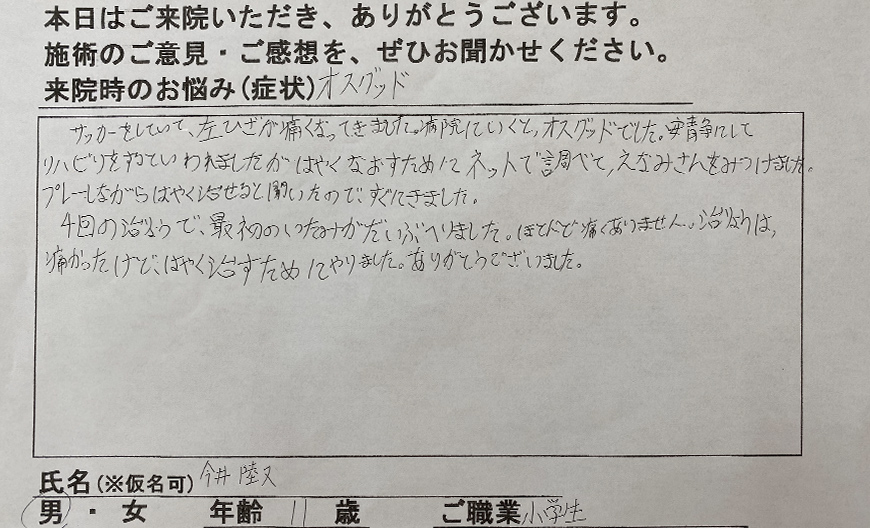 本日はご来院いただき、ありがとうございます。
施術のご意見・ご感想を、ぜひお聞かせください。
来院時のお悩み(症状)オスグッド
サッカーをしていて、左ひざが痛くなってきました。病院にいくと、オスグッドでした。安静にして
リハビリをするといわれましたがはやくなおすためにネットで調べて、えなみさんをみつけました。
プレーしながらはやく治せると聞いたので、すぐにきました。
4回の治りょうで、最初のいたみがだいぶへりました。ほとんど痛くありません。治りょうは、
痛かったけど、はやく治すためにやりました。ありがとうございました。
氏名(※仮名可)今井 陸又
男・女 年齢 11 歳 ご職業 小学生